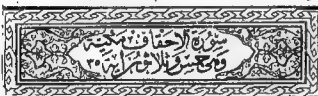 سورة الاحقاف مكية
وهي خمس وثلاثون اية ٣٥